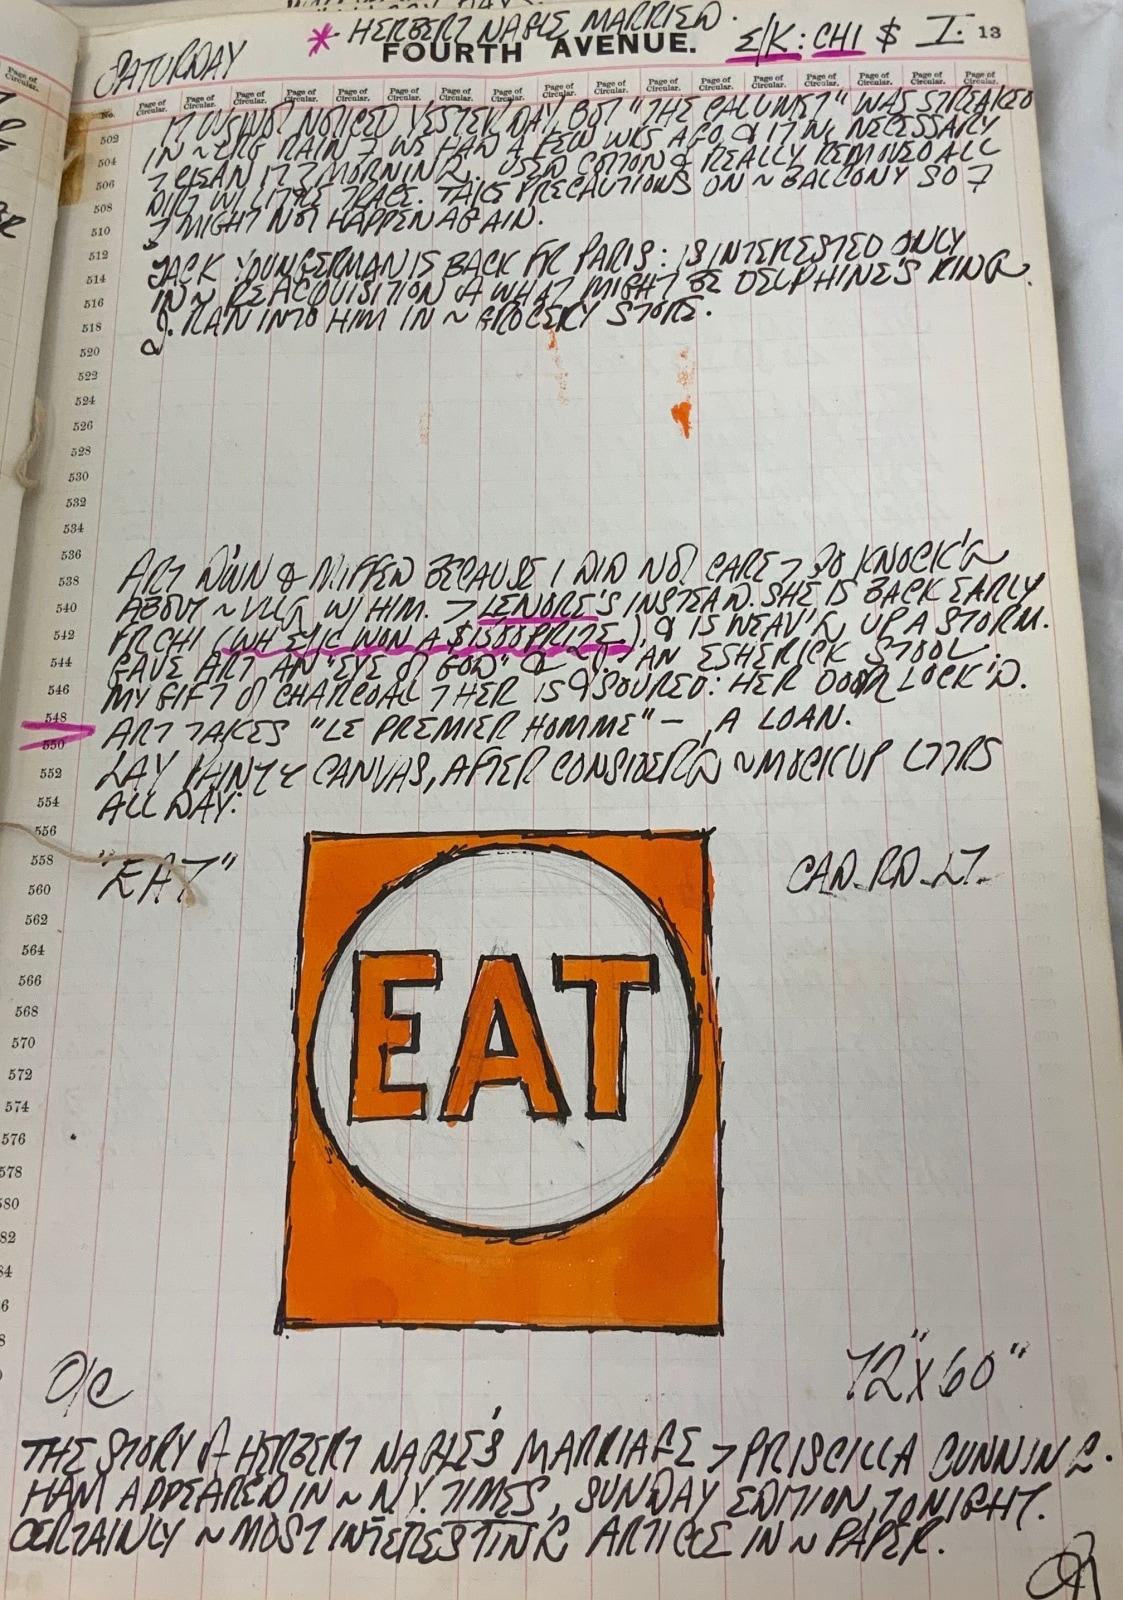 SATURDAY
* HERBERT NAGLE MARRIED.
FOURTH AVENUE.
E/K: CHI $ I. 13
Page of Circular. Page of Circular. Page of Circular. Page of Circular. Page of Circular. Page of Circular. Page of Circular. Page of Circular. Page of Circular. Page of Circular. Page of Circular. Page of Circular. Page of Circular. Page of Circular. Page of Circular. Page of Circular. Page of Circular.
No.
NOTICED YESTERDAY, BUT "THE CALUMET" WAS STREAKED
502
IN ~ RAIN WE HAD A FEW WKS AGO, & IT NECESSARY
504
CLEAN IT MORNING. USED COTTON & REALLY REMOVED ALL
506
DIRT W/ LITTLE TRACE. TAKE PRECAUTIONS ON ~ BALCONY SO
508
MIGHT NOT HAPPEN AGAIN.
510
512
JACK YOUNGERMAN IS BACK FR PARIS: IS INTERESTED ONLY
514
IN REACQUISITION OF WHAT MIGHT BE DELPHINE'S RING.
516
J. RAN INTO HIM IN ~ GROCERY STORE.
518
520
522
524
526
528
530
532
534
536
ART & MIFFED BECAUSE I DID NOT CARE > GO KNOCK'G
538
ABOUT ~ VLLG W/ HIM. > LENORE'S INSTEAD. SHE IS BACK EARLY
540
FR CHI (WH E/K WON A $1500 PRIZE), & IS WEAV'G UP A STORM.
542
GAVE ART AN "EYE OF GOD" & J. AN ESHERICK STOOL.
544
MY GIFT OF CHARCOAL HER IS SOURED: HER DOOR LOCK'D.
546
548
ART TAKES "LE PREMIER HOMME" — A LOAN.
550
LAY PAINT CANVAS, AFTER CONSIDER'G ~ MOCKUP LTTRS
552
ALL DAY:
554
556
558
"EAT"
CAD. RD. LT.
560
562
564
EAT
566
568
570
572
574
576
578
580
82
84
6
8
O/C
72" X 60"
THE STORY OF HERBERT NAGLE'S MARRIAGE > PRISCILLA CUNNING-
HAM APPEARED IN ~ N.Y. TIMES, SUNDAY EDITION, TONIGHT.
CERTAINLY ~ MOST INTERESTING ARTICLE IN ~ PAPER.